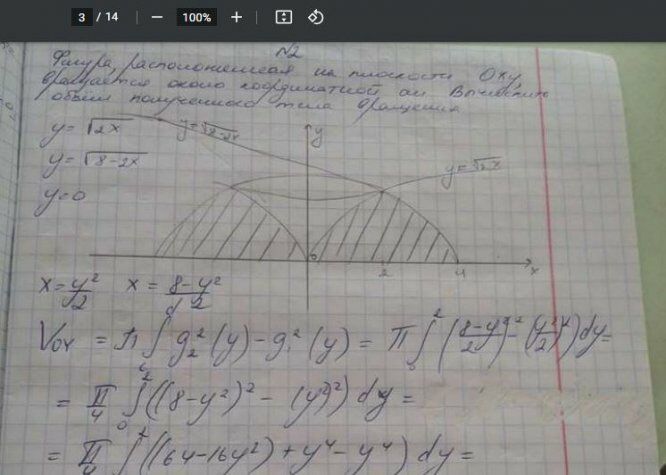 3 / 14 — 100% +
N2
Фигура, расположенная на плоскости Oxy,
вращается около координатной оси Вычислить
объём полученного тела вращения
y = √2x
y = √8-2x
y
y = √8-2x
y = √2x
y = 0
0 2 4 x
x = y²/2 x = 8-y²/2
V_OY = π ∫ g₂²(y) - g₁²(y) = π ∫₀² ((8-y²/2)² - (y²/2)²) dy =
= π/4 ∫₀² ((8-y²)² - (y²)²) dy =
= π/4 ∫ ((64-16y²) + y⁴ - y⁴) dy =